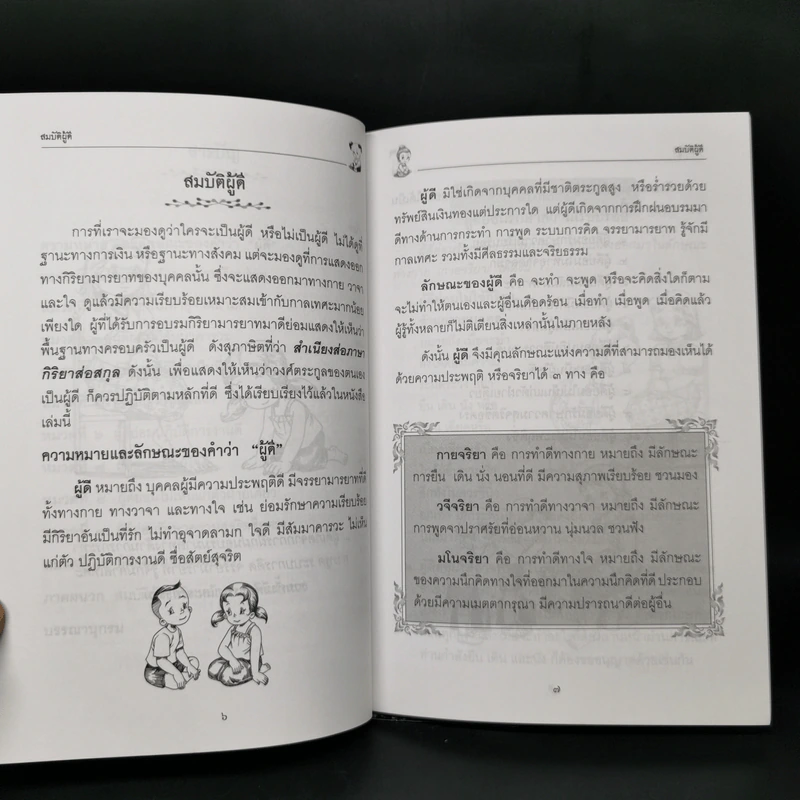 สมบัติผู้ดี
สมบัติผู้ดี
การที่เราจะมองดูว่าใครจะเป็นผู้ดี หรือไม่เป็นผู้ดี ไม่ได้ดูที่
ฐานะทางการเงิน หรือฐานะทางสังคม แต่จะมองดูที่การแสดงออก
ทางกิริยามารยาทของบุคคลนั้น ซึ่งจะแสดงออกมาทางกาย วาจา
และใจ ดูแล้วมีความเรียบร้อยเหมาะสมเข้ากับกาลเทศะมากน้อย
เพียงใด ผู้ที่ได้รับการอบรมกิริยามารยาทมาดีย่อมแสดงให้เห็นว่า
พื้นฐานทางครอบครัวเป็นผู้ดี ดังสุภาษิตที่ว่า สำเนียงส่อภาษา
กิริยาส่อสกุล ดังนั้น เพื่อแสดงให้เห็นว่าวงศ์ตระกูลของตนเอง
เป็นผู้ดี ก็ควรปฏิบัติตามหลักที่ดี ซึ่งได้เรียบเรียงไว้แล้วในหนังสือ
เล่มนี้
ความหมายและลักษณะของคำว่า "ผู้ดี"
ผู้ดี หมายถึง บุคคลผู้มีความประพฤติดี มีจรรยามารยาทที่ดี
ทั้งทางกาย ทางวาจา และทางใจ เช่น ย่อมรักษาความเรียบร้อย
มีกิริยาอันเป็นที่รัก ไม่ทำอุจาดลามก ใจดี มีสัมมาคารวะ ไม่เห็น
แก่ตัว ปฏิบัติการงานดี ซื่อสัตย์สุจริต
๖
สมบัติผู้ดี
ผู้ดี มิใช่เกิดจากบุคคลที่มีชาติตระกูลสูง หรือร่ำรวยด้วย
ทรัพย์สินเงินทองแต่ประการใด แต่ผู้ดีเกิดจากการฝึกฝนอบรมมา
ดีทางด้านการกระทำ การพูด ระบบการคิด จรรยามารยาท รู้จักมี
กาลเทศะ รวมทั้งมีศีลธรรมและจริยธรรม
ลักษณะของผู้ดี คือ จะทำ จะพูด หรือจะคิดสิ่งใดก็ตาม
จะไม่ทำให้ตนเองและผู้อื่นเดือดร้อน เมื่อทำ เมื่อพูด เมื่อคิดแล้ว
ผู้รู้ทั้งหลายก็ไม่ติเตียนสิ่งเหล่านั้นในภายหลัง
ดังนั้น ผู้ดี จึงมีคุณลักษณะแห่งความดีที่สามารถมองเห็นได้
ด้วยความประพฤติ หรือจริยาได้ ๓ ทาง คือ
กายจริยา คือ การทำดีทางกาย หมายถึง มีลักษณะ
การยืน เดิน นั่ง นอนที่ดี มีความสุภาพเรียบร้อย ชวนมอง
วจีจริยา คือ การทำดีทางวาจา หมายถึง มีลักษณะ
การพูดจาปราศรัยที่อ่อนหวาน นุ่มนวล ชวนฟัง
มโนจริยา คือ การทำดีทางใจ หมายถึง มีลักษณะ
ของความนึกคิดทางใจที่ออกมาในความนึกคิดที่ดี ประกอบ
ด้วยมีความเมตตากรุณา มีความปรารถนาดีต่อผู้อื่น
๗